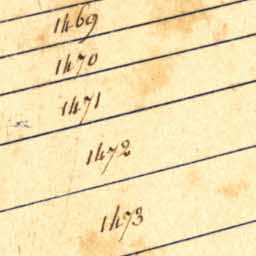 1469
1470
1471
1472
1473